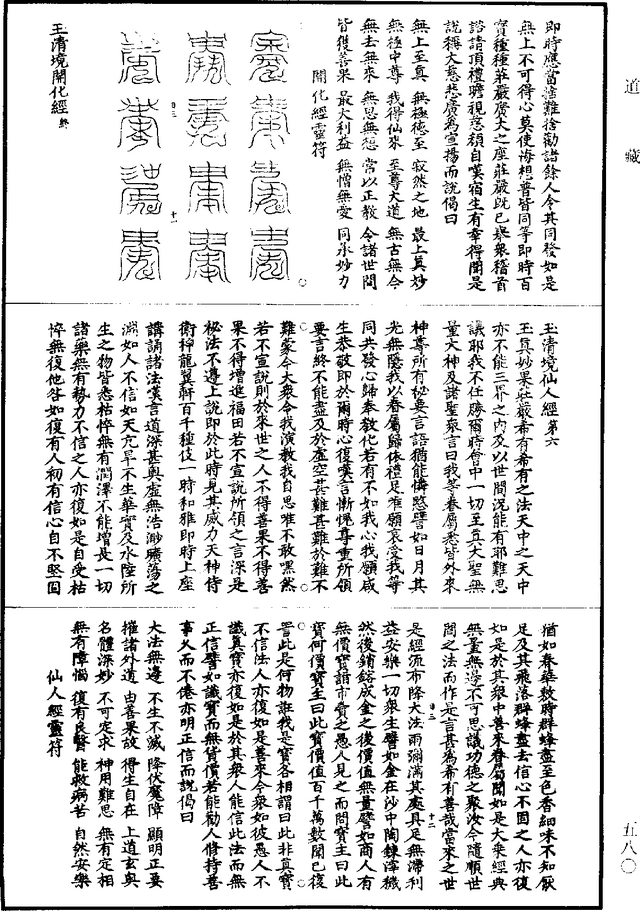 道藏
五八〇
即時應當遠難捨勸諸餘人令其同發如是
無上不可得心莫使悔想普皆同等即時百
寶種種莊嚴廣大之座莊嚴既已舉衆稽首
諮請頂禮瞻視慈顏自嘆宿生有幸得聞是
說稱大慈悲廣為宣揚而說偈曰
無上至真 無極德至 寂然之地 最上真妙
無極中尊 我得仙來 至尊大道 無古無今
無去無來 無思無想 常以正教 令諸世間
皆獲善果 最大利益 無憎無愛 同承妙力
開化經靈符
玉清境開化經終
玉清境仙人經第六
玉真妙果莊嚴希有希有之法天中之天中
亦不能三界之內及以世間況能有耶難思
議耶我不任勝爾時會中一切至真大聖無
量大神及諸聖衆言曰我等眷屬悉皆外來
神尊所有秘要言語猶能憐愍譬如日月其
光無隱我以眷屬歸依禮足唯願哀受我等
同共發心歸奉教化若有不如我心我願咸
生恭敬即於爾時心復嘆言慚愧尊重所領
要言終不能盡及於虛空甚難甚難於難不
難蒙令大衆令我演教我自思唯不敢嘿然
若不宣說則於來世之人不得善果不得善
果不得增進福田若不宣說所領之言深是
秘法不違上說即於此時見其威力天神侍
衛神龍翼軒百千種伎一時和雅即時上座
講誦諸法嘆言道深甚奥虛無浩渺曠蕩之
淵如人不信如天亢旱不生華實及水陸所
生之物皆悉枯悴無有潤澤不能增長一切
諸樂無有勢力不信之人亦復如是自受枯
悴無復他咎如復有人初有信心自不堅固
猶如春華敷時群蜂盡至色香細味不知猒
足及其飛落群蜂盡去信心不固之人亦復
如是於其衆中善來眷屬聞如是大乘經典
無量無邊不可思議功德之聚汝今隨順世
間之法而作是言甚為希有善哉當來之世
是經流布降大法雨彌滿其處具足無滯利
益安樂一切衆生譬如金在沙中陶鍊滓穢
然後銷鎔成金之後價值無量譬如商人有
無價寶詣市賣之愚人見之而問寶主曰此
寶何價寶主曰此寶價值百千萬數聞已復
言此是何物誑我是寶各相謂曰此非真寶
不信法人亦復如是善來今衆如彼愚人不
識真寶亦復如是於其衆人能信此法而無
正信譬如識寶而無貨價若能勸人修持善
事久而不倦亦明正信而說偈曰
大法無邊 不生不滅 降伏魔障 顯明正要
摧諸外道 由善果故 得生自在 上道玄奥
名體深妙 不可定求 神用難思 無有定相
無有障惱 復有良醫 能救病苦 自然安樂
仙人經靈符